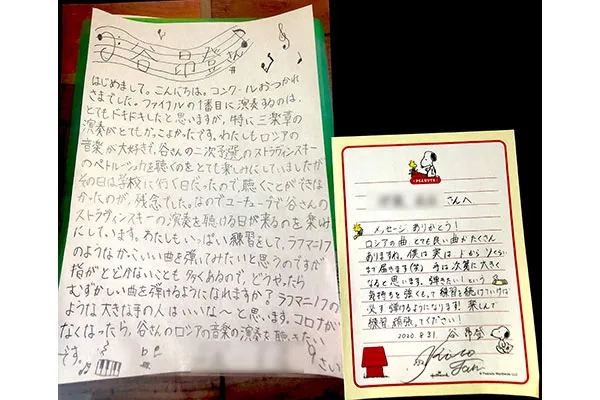 谷 昂登さん
はじめまして。こんにちは。コンクールおつかれ
さまでした。ファイナルの1番目に演奏するのは、
とてもドキドキしたと思いますが、特に三楽章の
演奏がとてもかっこよかったです。わたしもロシアの
音楽が大好きで、谷さんの二次予選のストラヴィンスキー
のペトルーシュカを聴くのをとても楽しみにしていましたが
その日は学校に行く日だったので、聴くことができな
かったのが、残念でした。なのでユーチューブで谷さんの
ストラヴィンスキーの演奏を聴ける日が来るのを楽しみ
にしています。わたしもいっぱい練習をして、ラフマニノフ
のようなかっこいい曲を弾いてみたいと思うのですが
指がとどかないことも多くあるので、どうやったら
むずかしい曲を弾けるようになれますか?ラフマニノフの
ような大きな手の人はいいな〜と思います。コロナが
なくなったら、谷さんのロシアの音楽の演奏を聴きたい
です。
さい
PEANUTS
さんへ
メッセージ、ありがとう!
ロシアの曲、とても良い曲がたくさん
ありますね。僕は実はドからソくらい
まで届きます(笑) 手は次第に大きく
なると思います。弾きたい!という
気持ちを強くもって練習を続けていけば
必ず弾けるようになります! 楽しんで
練習、頑張ってください!
2020.8.31 谷 昂登
Hallmark
© Peanuts Worldwide LLC